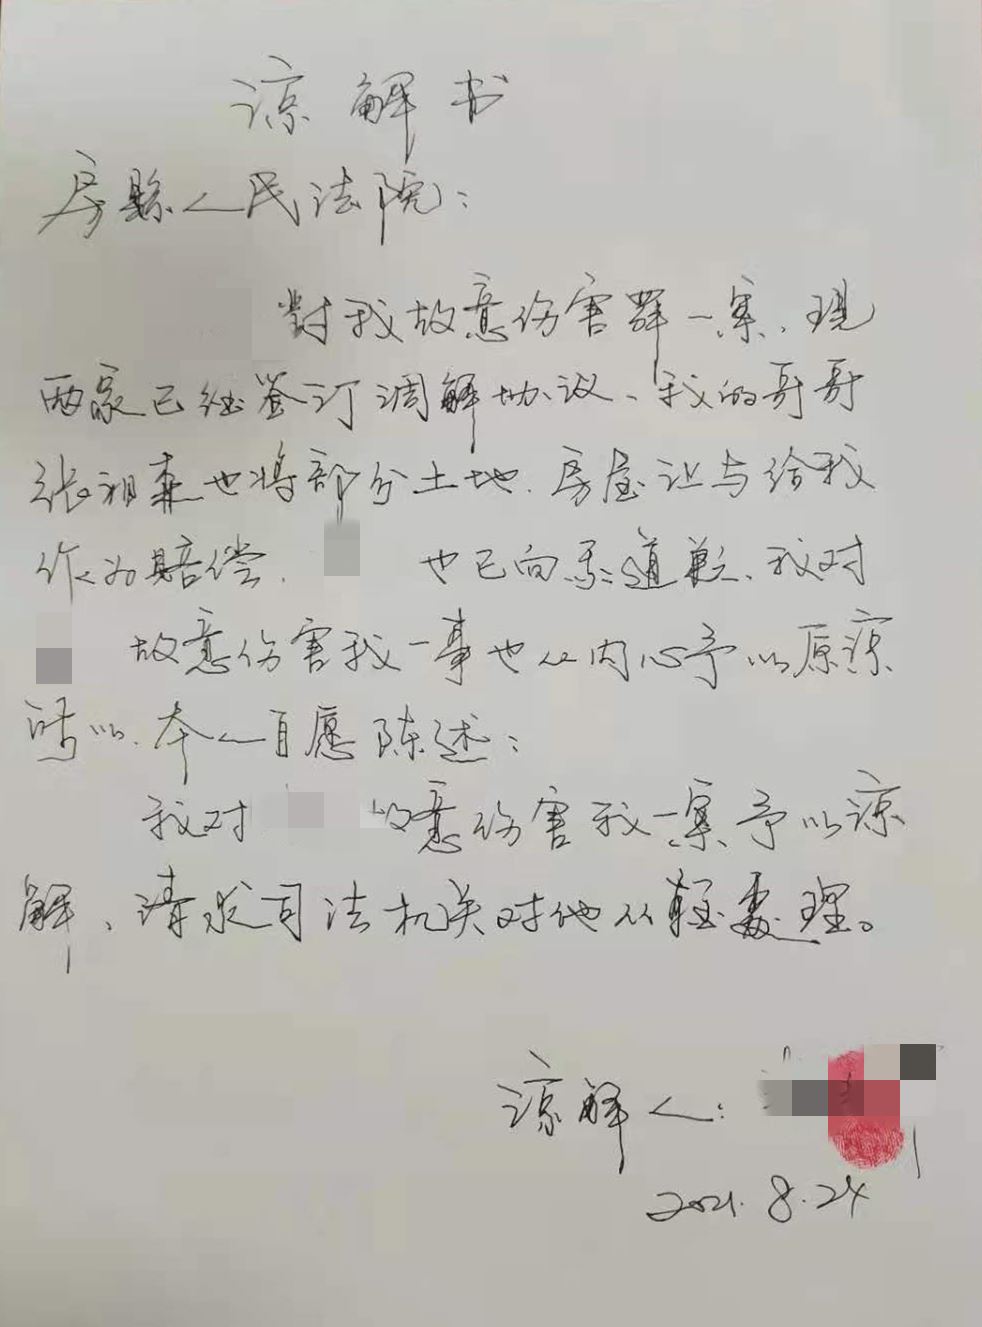 谅解书
房縣人民法院：
對我故意伤害罪一案，现
两家已经签订调解协议、我的哥哥
张祖森也将部分土地、房屋让与给我
作为赔偿、也已向我道歉、我对
故意伤害我一事也从内心予以原谅
所以、本人自愿陈述：
我对 故意伤害我一案予以谅
解、请求司法机关对他从轻處理。
谅解人：
2021.8.24